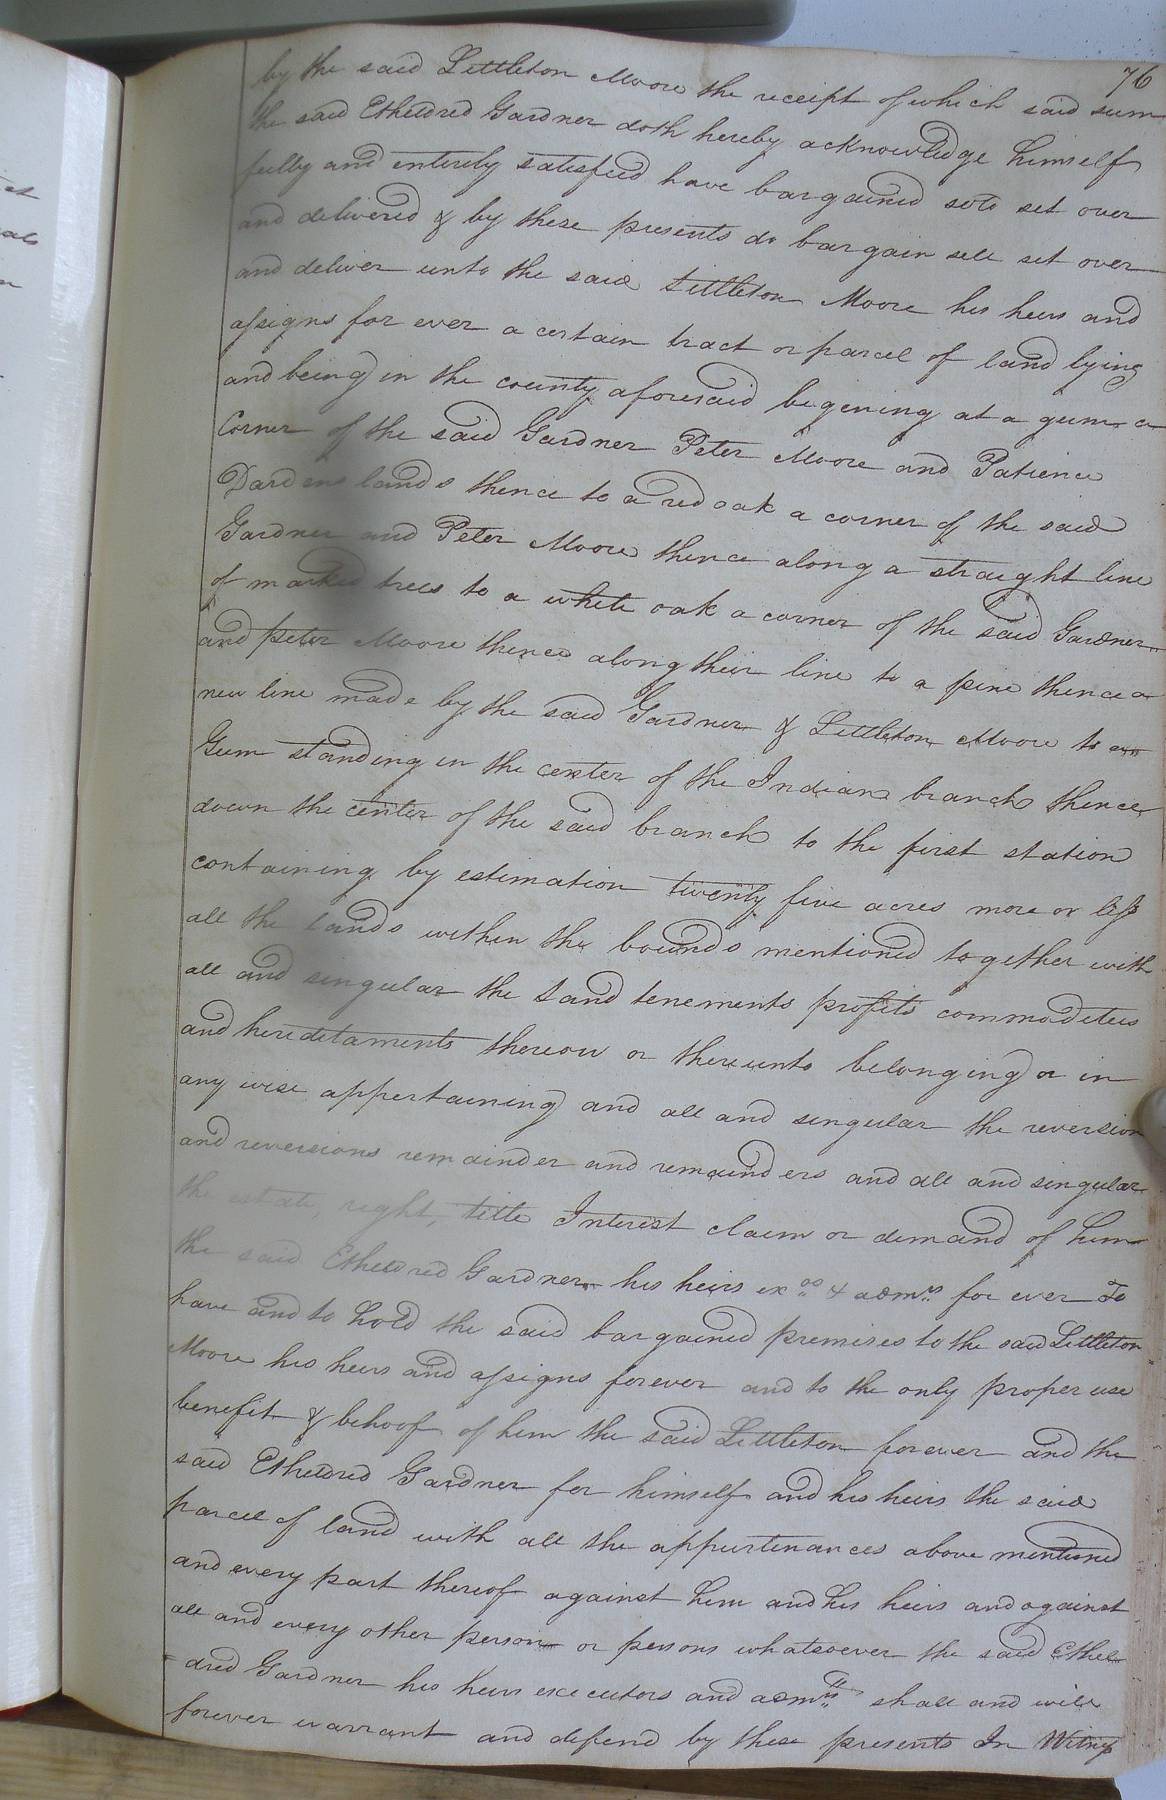 76
by the said Littleton Moore the receipt of which said sum
the said Etheldred Gardner doth hereby acknowledge himself
fully and entirely satisfied have bargained sold set over
and delivered & by these presents do bargain sell set over
and deliver unto the said Littleton Moore his heirs and
assigns for ever a certain tract or parcel of land lying
and being in the county aforesaid begening at a gum a
Corner of the said Gardner Peter Moore and Patience
Dardens lands thence to a red oak a corner of the said
Gardner and Peter Moore thence along a straight line
of marked trees to a white oak a corner of the said Gardner
and peter Moore thence along their line to a pine thence a
new line made by the said Gardner & Littleton Moore to a
Gum standing in the center of the Indian branch thence
down the center of the said branch to the first station
containing by estimation twenty five acres more or less
all the lands within the bounds mentioned together with
all and singular the land tenements profits commodeties
and hereditaments thereon or thereunto belonging or in
any wise appertaining and all and singular the reversion
and reversions remainder and remainders and all and singular
the estate, right, title Interest claim or demand of him
the said Etheldred Gardner his heirs exos & admrs for ever To
have and to hold the said bargained premises to the said Littleton
Moore his heirs and assigns forever and to the only proper use
benefit & behoof of him the said Littleton forever and the
said Etheldred Gardner for himself and his heirs the said
parcel of land with all the appurtenances above mentioned
and every part thereof against him and his heirs and against
all and every other person or persons whatsoever the said Ethel
=dred Gardner his heirs executors and admrs shall and will
forever warrant and defend by these presents In Witness